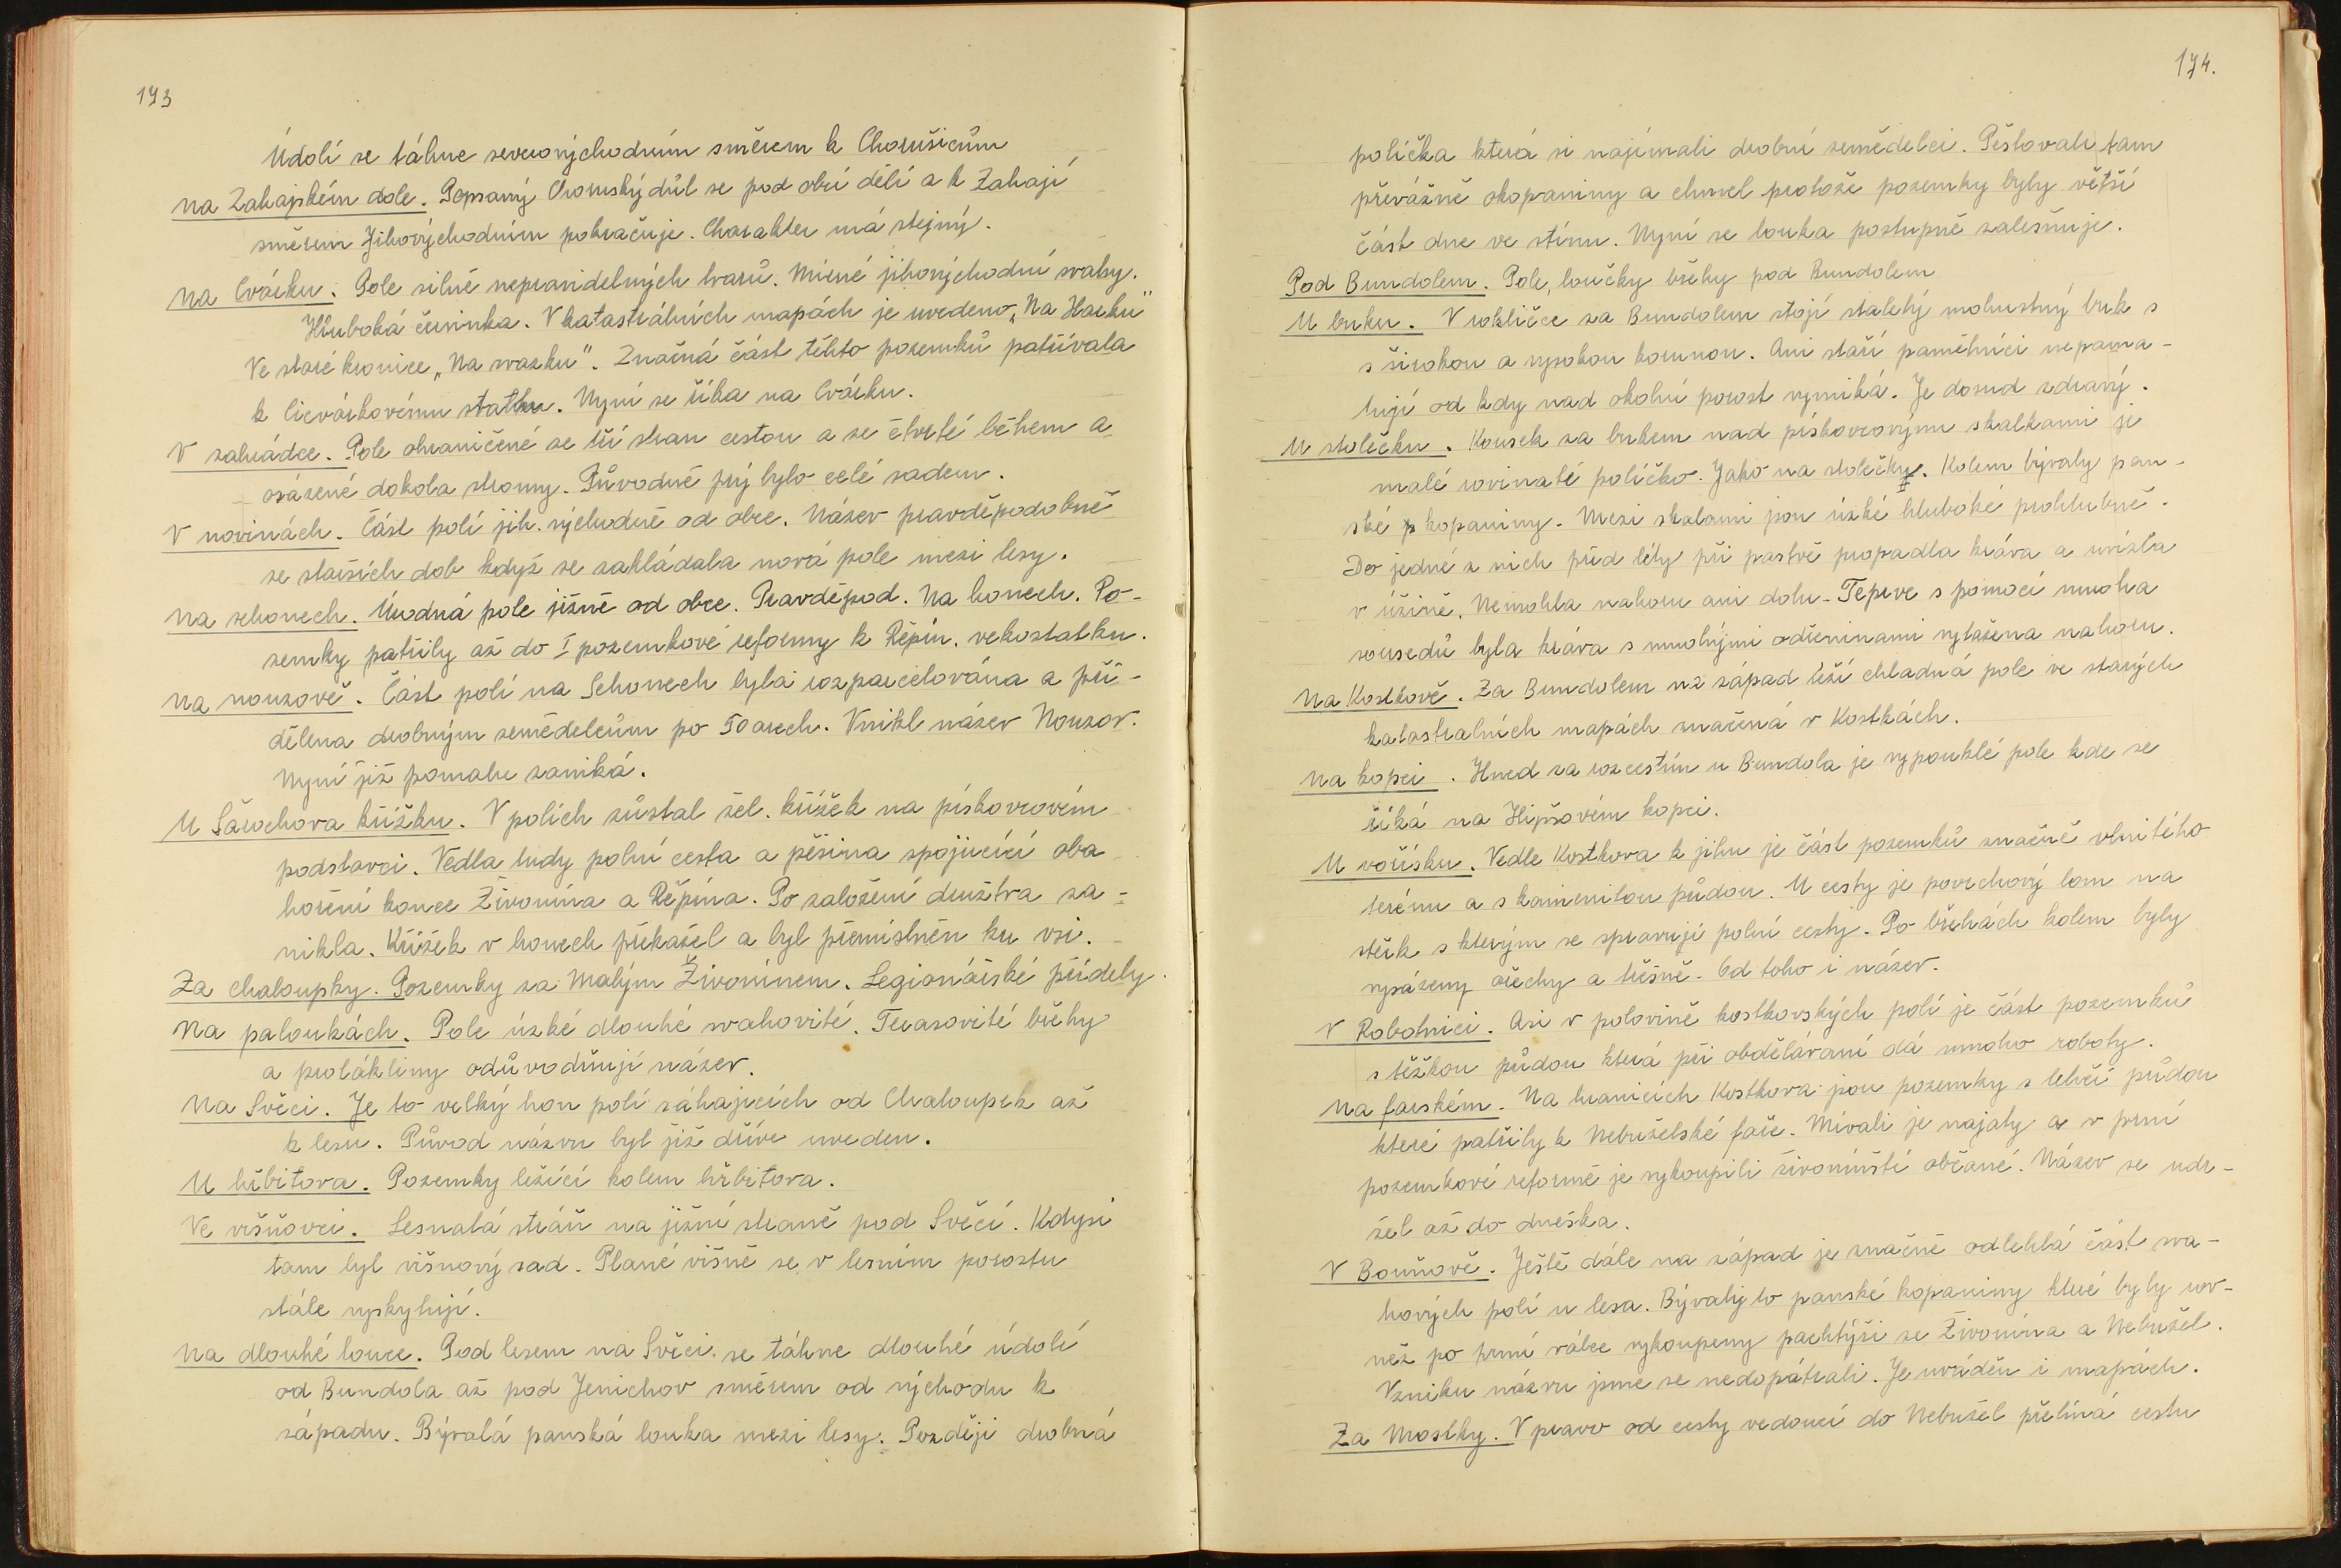 173
Údolí se táhne severovýchodním směrem k Chorušicům
Na Zahájském dole. Popsaný Chorušský důl se pod obcí dělí a k Zahájí
směrem Jihovýchodním pokračuje. Charakter má stejný.
Na Cvárku. Pole silně nepravidelných tvarů. Mírné jihovýchodní svahy.
Hluboká červinka. V katastrálních mapách je uvedeno „Na Harku"
Ve staré kronice „Na svazku". Značná část těchto pozemků patřívala
k Cicvárkovému statku. Nyní se říka na Cvárku.
V zahrádce. Pole ohraničené ze tří stran cestou a ze čtvrté během a
osázené dokola stromy. Původně prý bylo celé sadem.
V novinách. Část polí jih. východně od obce. Název pravděpodobně
ze starších dob když se zakládala nová pole mezi lesy.
Na schonech. Úrodná pole jižně od obce. Pravděpod. Na honech. Po-
zemky patřily až do I pozemkové reformy k Řepín. vekostatku.
Na nouzově. Část polí na Schonech byla rozparcelována a při-
dělena drobným zemědelcům po 50 arech. Vznikl název Nouzov.
Nyní již pomalu zaniká.
U Šarochova křížku. V polích zůstal žel. křížek na pískovcovém
podstavci. Vedla tudy polní cesta a pěšina spojující oba
horení konce Živonína a Řepína. Po založení družstva za-
nikla. Křížek v honech překážel a byl přemístněn ku vsi.
Za chaloupky. Pozemky za Malým Živonínem. Legionářské příděly.
Na paloukách. Pole úzké dlouhé svahovité. Terasovité břehy
a prolákliny odůvodňují název.
Na Svěci. Je to velký hon polí sáhajících od Chaloupek až
k lesu. Původ názvu byl již dříve uveden.
U hřbitova. Pozemky ležící kolem hřbitova.
Ve višňovci. Lesnatá stráň na jižní straně pod Svěcí. Kdysi
tam byl višňový sad. Plané višně se v lesním porostu
stále vyskytují.
Na dlouhé louce. Pod lesem na Svěci se táhne dlouhé údolí
od Bundola až pod Jenichov směrem od východu k
západu. Bývalá panská louka mezi lesy. Později drobná
174.
políčka která si najímali drobní zemědelci. Pěstovali tam
převážně okopaniny a chmel protože pozemky byly větší
část dne ve stínu. Nyní se louka postupně zalesňuje.
Pod Bundolem. Pole, loučky břehy pod Bundolem
U buku. V rokličce za Bundolem stojí staletý mohustný buk s
s širokou a vysokou korunou. Ani staří pamětníci nepama-
tují od kdy nad okolní porost vyniká. Je dosud zdravý.
U stolečku. Kousek za bukem nad pískovcovými skalkami je
malé rovinaté políčko. Jako na stolečku. Kolem bývaly pan-
ské kopaniny. Mezi skalami jsou úzké hluboké prohlubně.
Do jedné z nich před léty při pastvě propadla kráva a uvízla
v úžině. Nemohla nahoru ani dolu. Teprve s pomocí mnoha
sousedů byla kráva s mnohými odřeninami vytažena nahoru.
Na Kostkově. Za Bundolem na západ leží chladná pole ve starých
katastralních mapách značená v Kostkách.
Na kopci. Hned za rozcestím u Bundola je vypouklé pole kde se
říká na Hipšovém kopci.
U voříšku. Vedle Kostkova k jihu je část pozemků značně vlnitého
terénu a s kamenitou půdou. U cesty je povrchový lom na
štěrk s kterým se spravují polní cesty. Po březích kolem byly
vysázeny ořechy a třešně. Od toho i název.
V Robotnici. Asi v polovině kostkovských polí je část pozemků
s těžkou půdou která při obdělávaní dá mnoho roboty.
Na farském. Na hranicích Kostkova jsou pozemky s lehčí půdou
které patřily k Nebuželské faře. Mívali je najaty a v první
pozemkové reformě je vykoupili živonínští občané. Název se udr-
žel až do dneška.
V Bouňově. Ještě dále na západ je značně odlehlá část sva-
hových polí u lesa. Bývaly to panské kopaniny které byly rov-
něž po první válce vykoupeny pachtýři ze Živonína a Nebužel.
Vzniku názvu jsme se nedopátrali. Je uváděn i mapách.
Za Mostky. V pravo od cesty vedoucí do Nebužel přetíná cestu